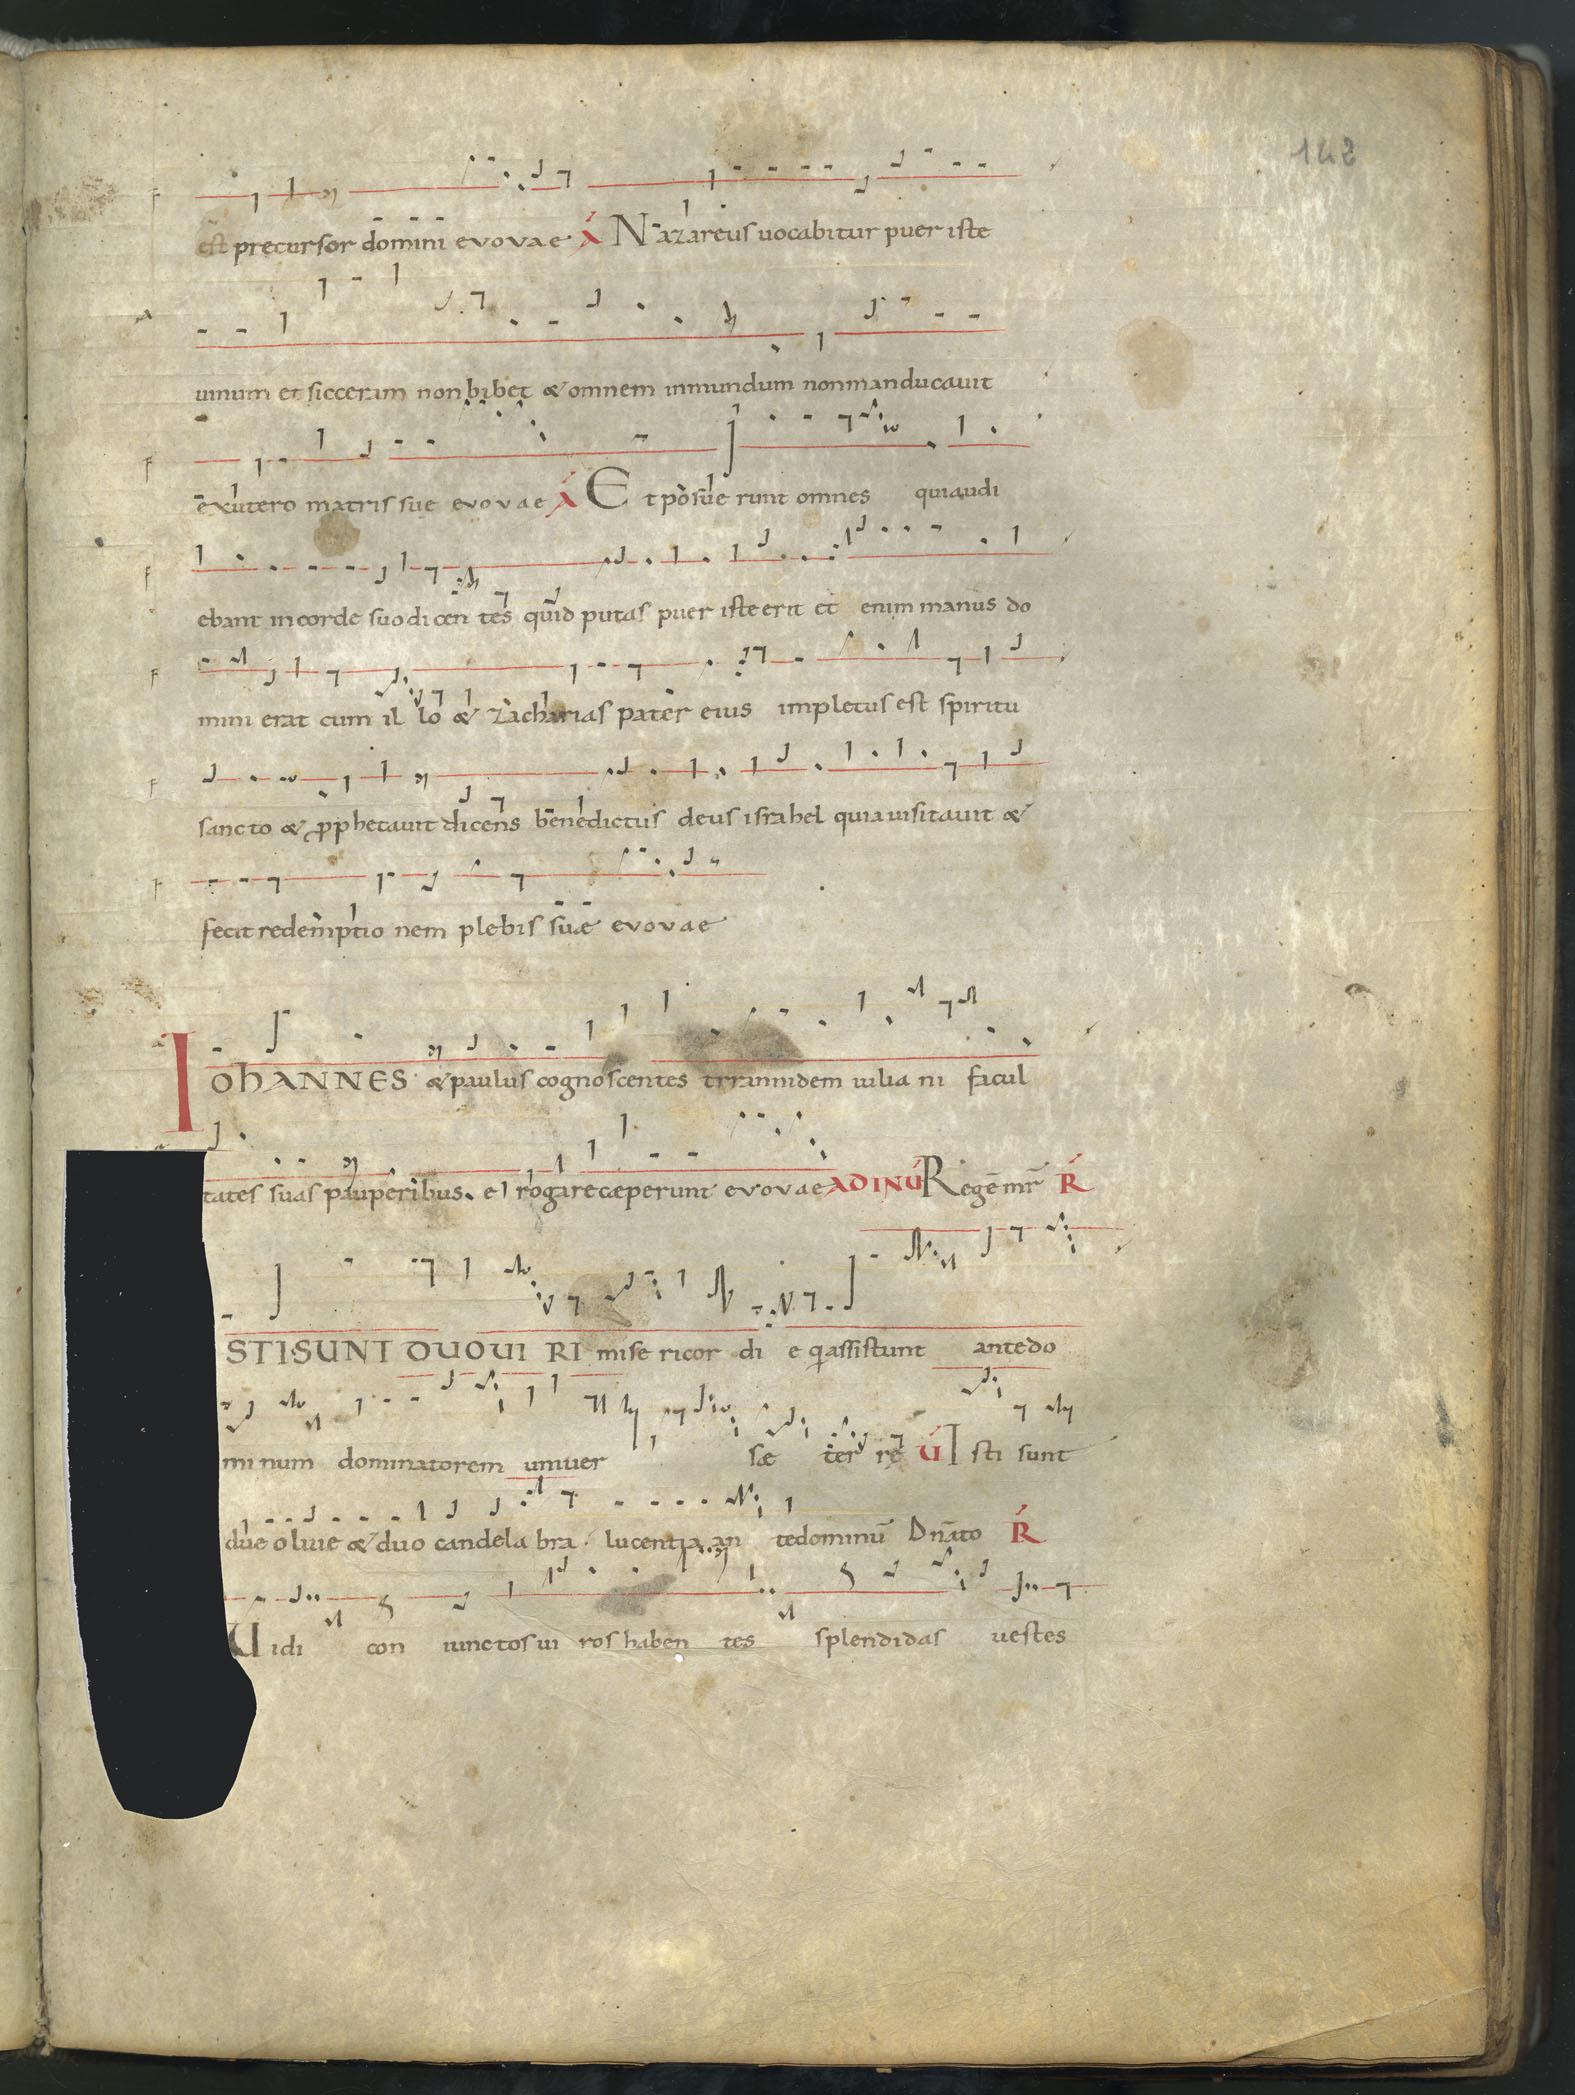 148
est precursor domini evovae A Nazareus uocabitur puer iste
uinum et sicceram non bibet & omnem inmundum non manducauit
exutero matris sue evovae A Et posue runt omnes quiaudi
ebant in corde suo di cen tes quid putas puer iste erit et enim manus do
mini erat cum il lo & zacharias pater eius impletus est spiritu
sancto & pphetauit dicens benedictus deus israhel quia uisitauit &
fecit redemptio nem plebis suae evovae
IOHANNES & paulus cognoscentes tirannidem iulia ni facul
tates suas pauperibus. e rogare caeperunt evovae AD INU Regē mr̄ R
STI SUNT DUO UI RI mise ricor di e q assistunt ante do
mi num dominatorem uniuer sae ter re U Isti sunt
due oliuae & duo candela bra lucentia an te dominū Dnāto R
Uidi con iunctos ui ros haben tes splendidas uestes